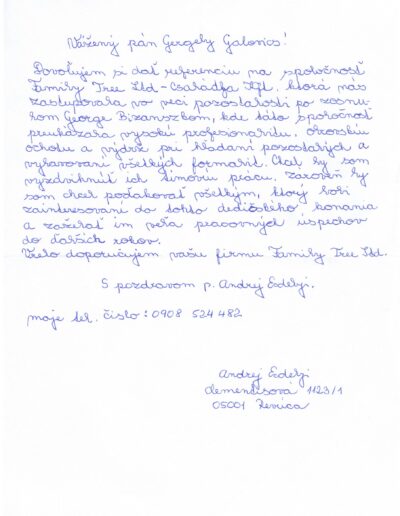 Vážený pán Gergely Galovics!
Dovoľujem si dať referenciu na spoločnosť
Family Tree Ltd-Családfa Kft, ktorá nás
zastupovala vo veci pozostalosti po zosnu-
lom George Bizanszkom, kde táto spoločnosť
preukázala vysokú profesionalitu, obrovskú
ochotu a výdrž pri hladaní pozostalých a
vybavovaní všetkých formalít. Chcel by som
vyzdvihnúť ich tímovú prácu. Zároveň by
som chcel poďakovať všetkým, ktorý boli
zainteresovaní do tohto dedičského konania
a zaželať im veľa pracovných úspechov
do ďalších rokov.
Vrelo doporučujem vašu firmu Family Tree Ltd.
S pozdravom p. Andrej Erdélyi.
moje tel. číslo: 0908 524 482
Andrej Erdélyi
Clementisová 1123/1
05001 Revúca